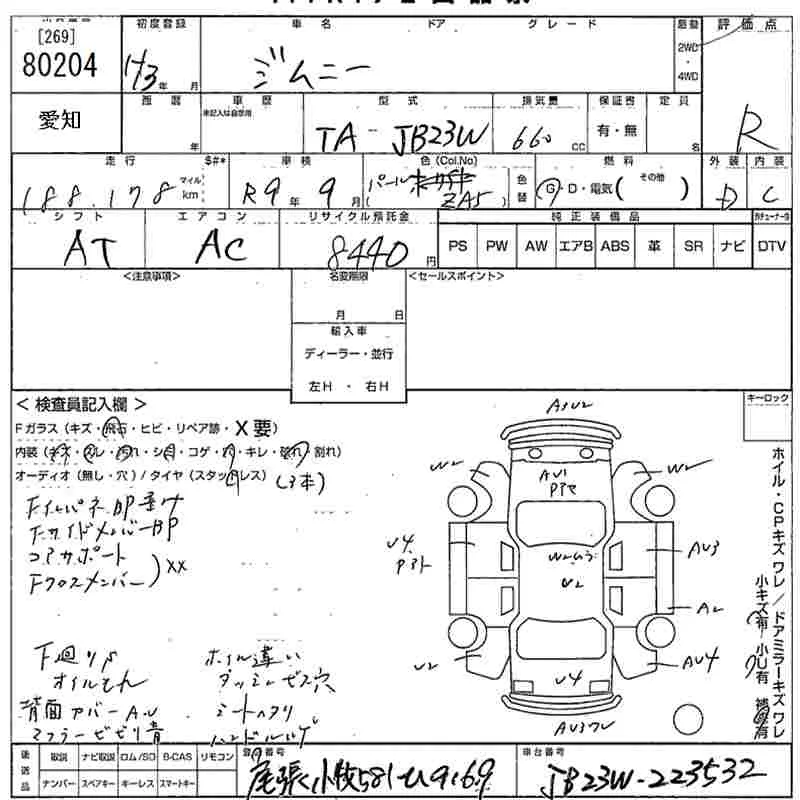 [269]
80204
初度登録 車名 ドア グレード 駆動 評価点
H3年 月 ジムニー 2WD・4WD
愛知
西暦 車歴 型式 排気量 保証書 定員
未記入は自家用
年 TA-JB23W 660 cc 有・無 名
R
走行 $#* 車検 色(Col.No) 燃料 外装 内装
188.178 マイル km R9年9月 パール ZA5 色替 G・D・電気( その他 ) D C
シフト エアコン リサイクル預託金 純正装備品
AT AC 8440円 PS PW AW エアB ABS 革 SR ナビ DTV
<注意事項> 名変期限 <セールスポイント>
月 日
輸入車
ディーラー・並行
左H・右H
<検査員記入欄>
キーロック
Fガラス(キズ・飛石・ヒビ・リペア跡・X要)
内装(キズ・スレ・汚れ・シミ・コゲ・穴・キレ・破れ・割れ)
オーディオ(無し・穴)/タイヤ(スタッドレス) (3本)
Fサイドメンバー
コアサポート
Fクロスメンバー )XX
F廻りS
オイルもれ
背面カバーAU
マフラー
ホイル違い
ダッシュビス穴
シートヘタリ
AU2
W2 W2
AU1
U4 AU3
U2
A2
U2 AU4
U4
AU3ワレ
ホイル・CPキズ ワレ/ドアミラーキズ ワレ
小キズ有 小U有
後送品 取説 ナビ取説 ロム/SD B-CAS リモコン 登録番号 車台番号
ナンバー スペアキー キーレス スマートキー 尾張小牧581 JB23W-223532